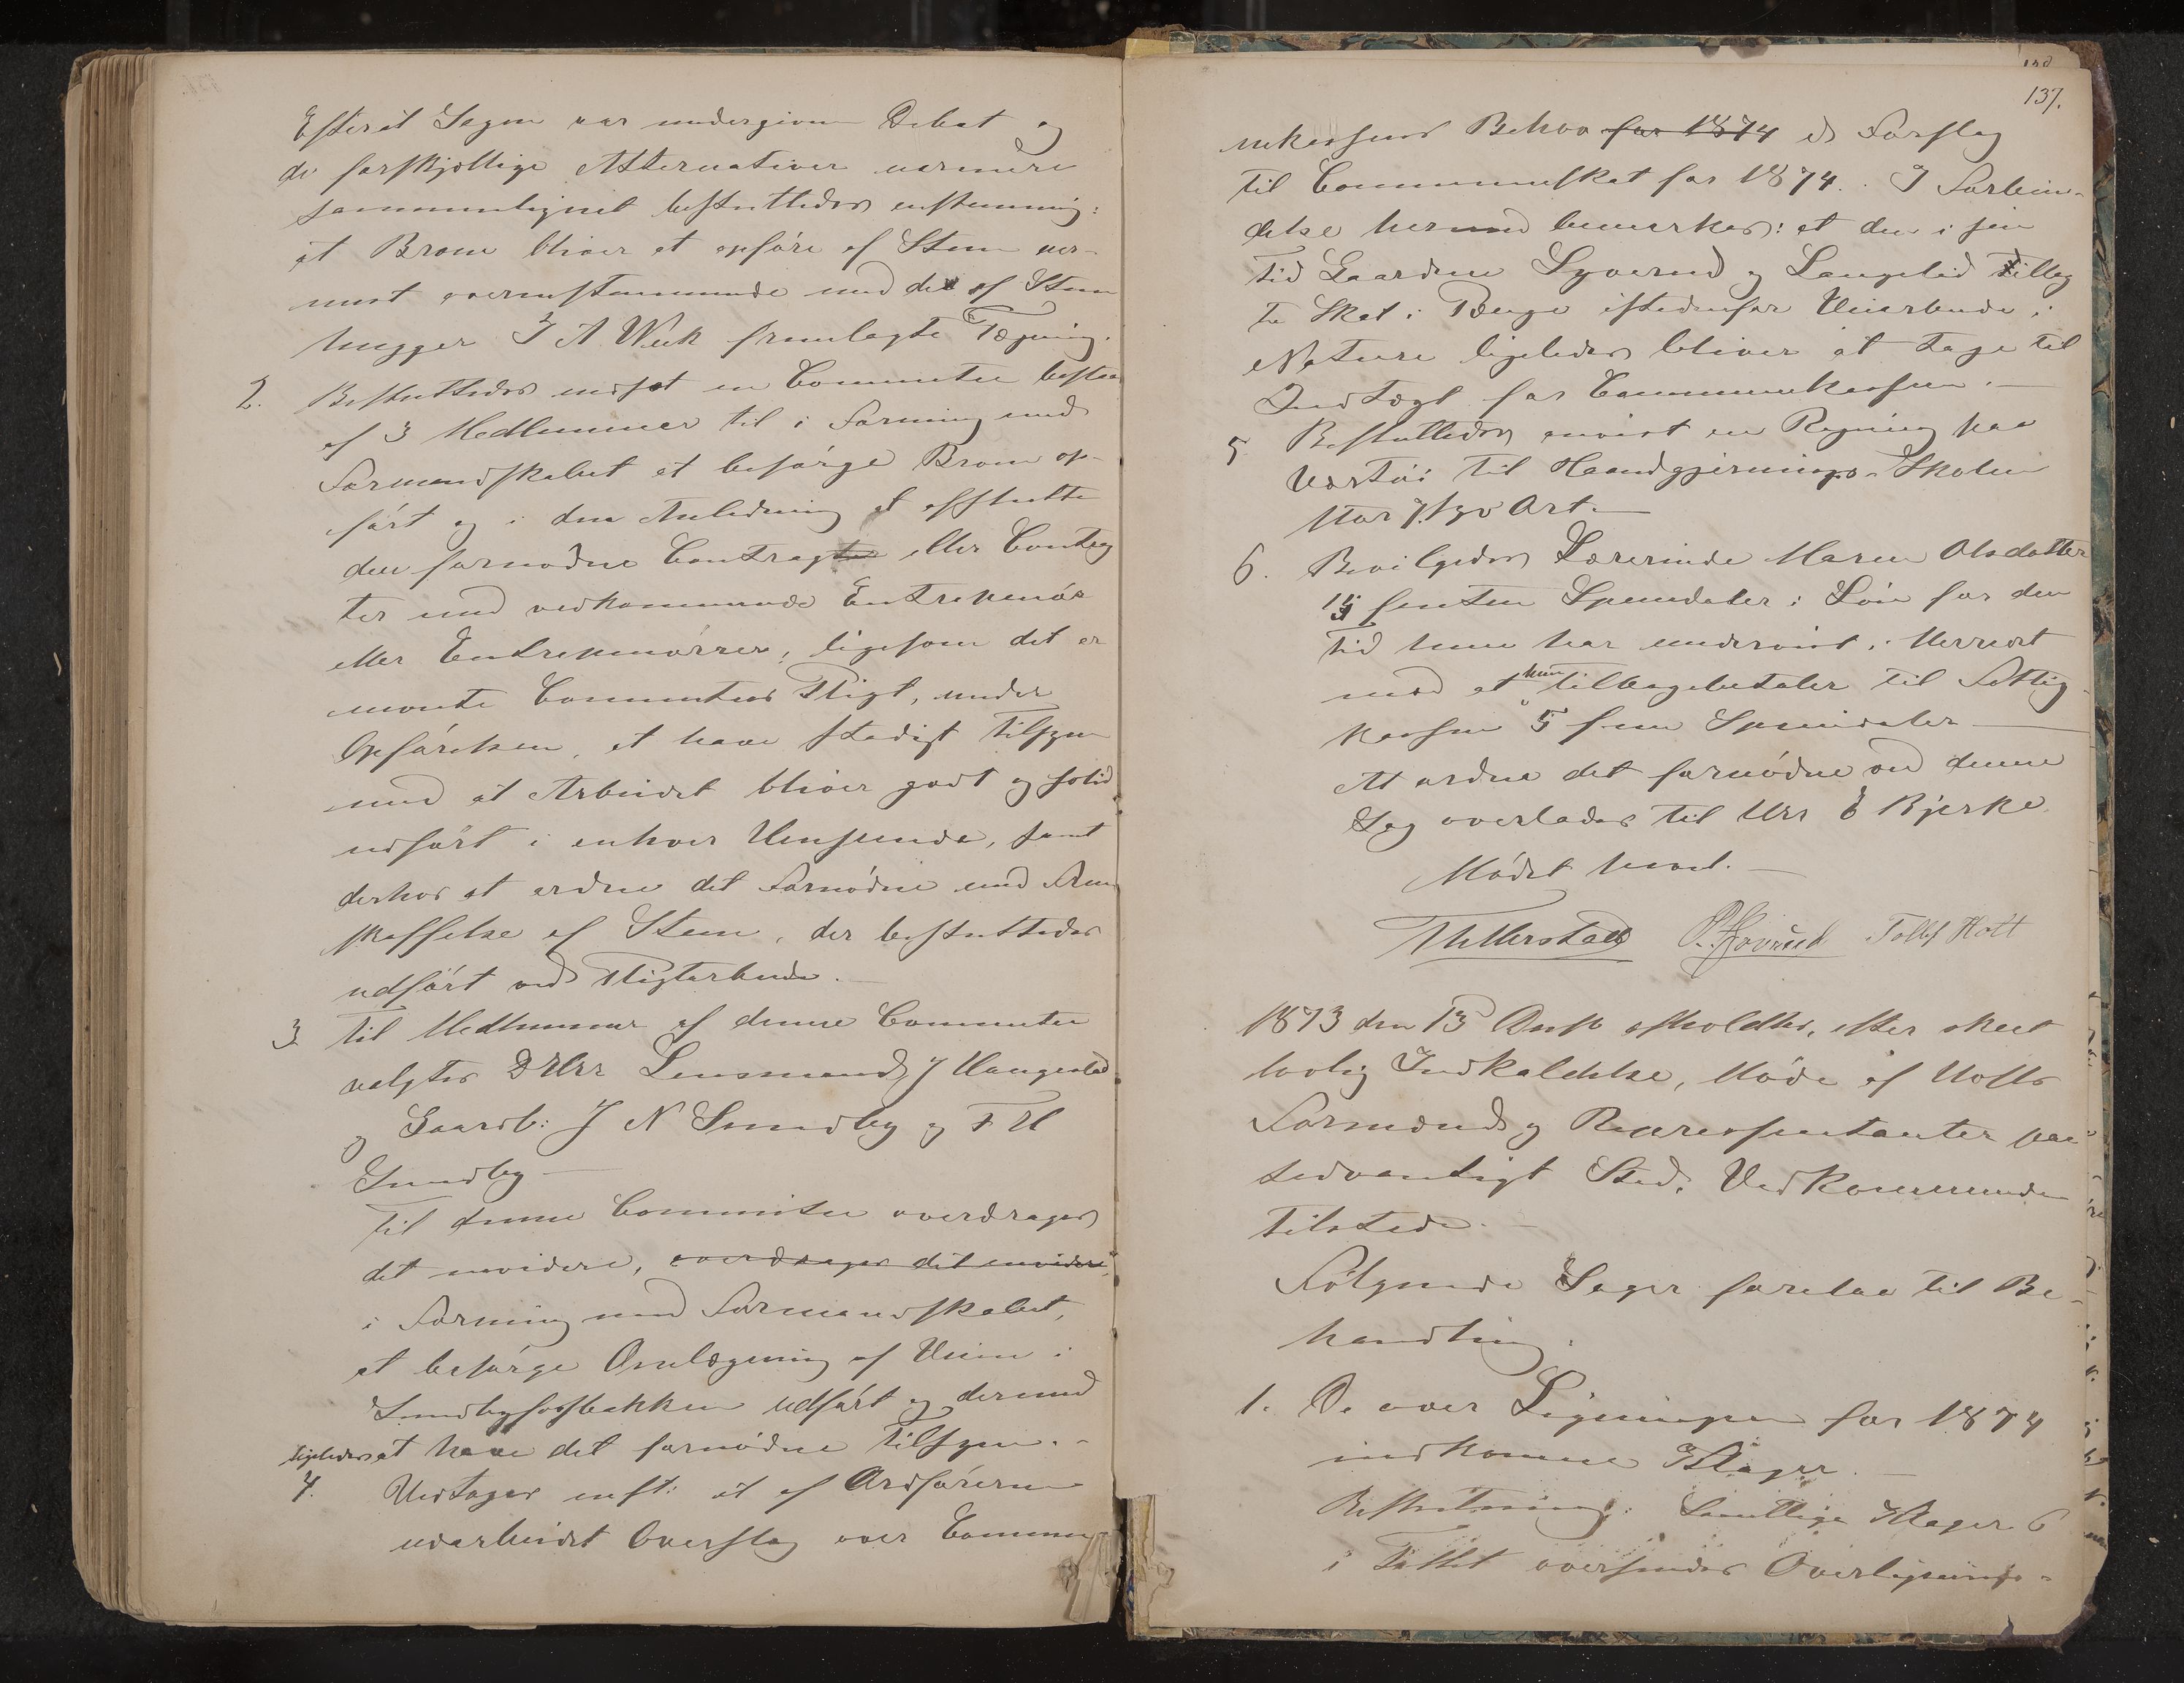 Efterat Sagen var undergiven Debat og
de forskjællige Alternativer nærmere
sammenlignet besluttedes enstemmig:
at Broen bliver at opføre af Sten nær-
mest overensstemmende med de af Sten
hugger J A Wiik fremlagte Tegning.
2. Besluttedes nedsat en Committee bestaa
af 3 Medlemmer til i Forening med
Formandskabet at besørge Broen op-
ført og i den Anledning at afslutte
den fornødne Contragter eller Contrag
ter med vedkommende Entreprenør
eller Entreprenører, ligesom det er
nævnte Committees Pligt, under
Opførelsen, at have stadigt Tilsyn
med at Arbeidet bliver godt og solid
udført i enhver Henseende, samt
derhos at ordne det Fornødne med Frem
skaffelse af Sten, der besluttedes
udført ved Pligtarbeide.
3. Til Medlemmer af denne Committee
valgtes DHrr Lensmand J Haugestad
og Gaardb: J N Sundby og F H
Sundby
Til denne Committee overdrages
det videre, overdrages det videre,
i Forening med Formandskabet,
at besørge Omlægning af Veien i
Sundbyfossbakken udført og dermed
ligeledes at have det fornødne Tilsyn.
4. Vedtages enst: at af Ordføreren
udarbeidet Overslag over Commu-
137.
nekassens Behov for 1874 og Forslag
til Communeskat for 1874. I Forbin-
delse hermed bemærkes: at den i sin
tid Gaardene Syverud og Langelid tillag
te Skat i Penge istedenfor Veiarbeide i
Nature ligeledes bliver at tage til
Indtægt for Communekassen.
5 Besluttedes anvist en Regning paa
Værktøi til Haandgjernings-Skolen
6. Bevilgedes Lærerinde Maren Olsdatter
15 femten Speciedaler i Løn for den
Tid hun har undervist i Herredet
mod at hun tilbagebetaler til Fattig
kassen 5 fem Speciedaler
At ordne det fornødne ved denne
Sag overlades til Hrr E Bjerke
Mødet hævet.
Tollef Holt
1873 den 13 afholdtes, efter skeet
lovlig Indkaldelse, Møde af
Formænd og Repræsentanter paa
sedvanligt Sted. Vedkommende
tilstede.
Følgende Sager forelaa til Be-
handling:
1. De over Ligningen for 1874
indkomne Klager.
Beslutning: Samtlige Klager 6
i Tallet oversendes Overligning-